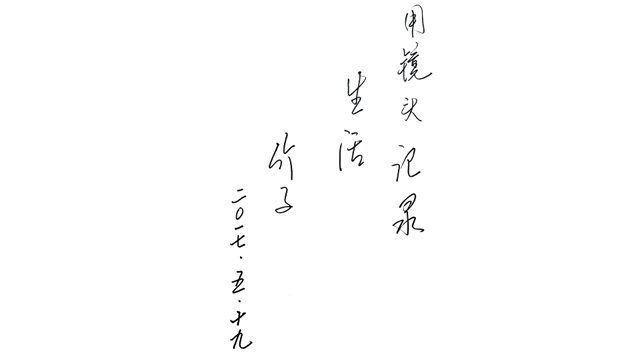 用镜头记录
生活
介子
二〇一七·五·十九